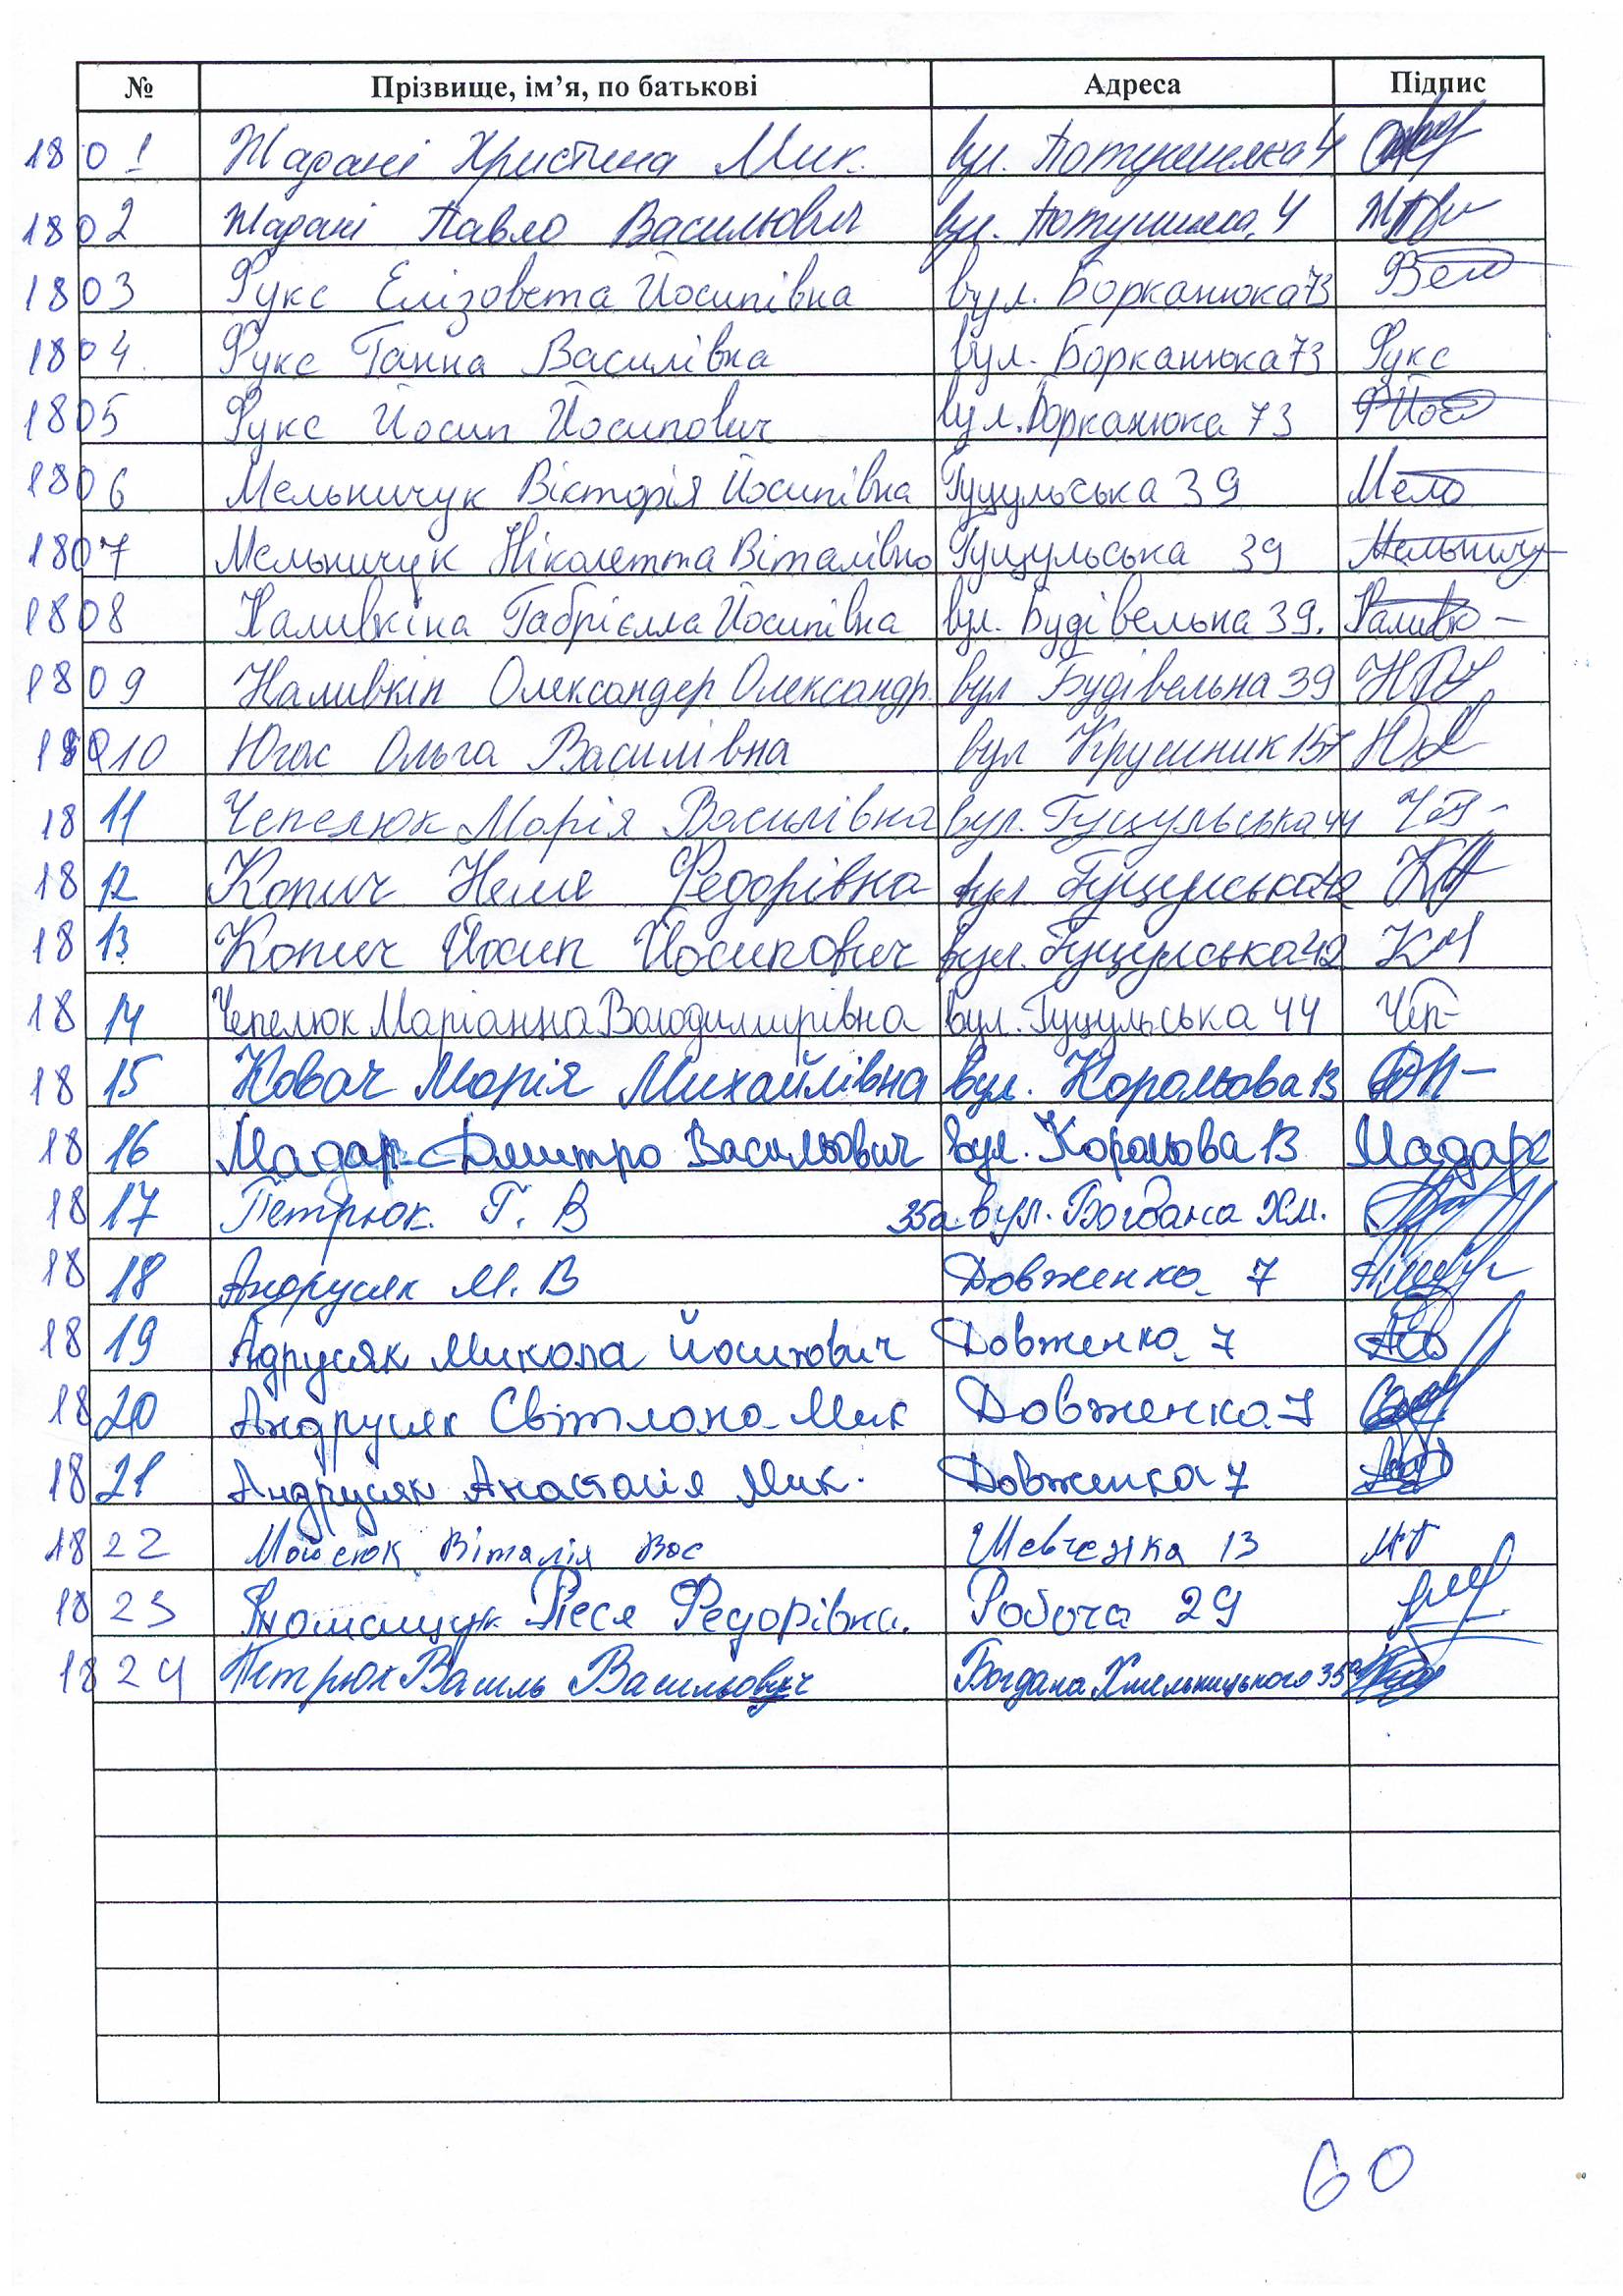 № Прізвище, ім’я, по батькові Адреса Підпис
1801 Жадані Христина Мик. вул. Потушняка 4
1802 Жадані Павло Васильович вул. Потушняка, 4
1803 Фукс Елізовета Йосипівна вул. Борканюка 73
1804. Фукс Ганна Василівна вул. Борканюка 73 Фукс
1805 Фукс Йосип Йосипович вул. Борканюка 73
1806 Мельничук Вікторія Йосипівна Гуцульська 39
1807 Мельничук Ніколетта Віталівно Гуцульська 39 Мельничу
1808 Наливкіна Габрієлла Йосипівна вул. Будівельна 39.
1809 Наливкін Олександер Олександр. вул Будівельна 39
1810 Югас Ольга Василівна вул Крушник 157
1811 Чепелюк Марія Василівна вул. Гуцульська 44
1812 Копич Неля Федорівна вул. Гуцулська 42
1813 Копич Йосип Йосипович вул. Гуцулська 42
1814 Чепелюк Маріанна Володимирівна вул. Гуцульська 44 Чеп-
1815 Ковач Марія Михайлівна вул. Корольова 13
1816 Мадар Дмитро Васильович вул. Корольова 13 Мадар
1817 Петрюк. Г. В 35а вул. Богдана Хм.
1818 Андрусяк М. В Довженко 7
1819 Адрусяк Микола Йосипович Довженко 7
1820 Андрусяк Світлона Мик Довженко 7
1821 Андрусяк Анастасія Мик. Довженка 7
1822 Мойсюк Віталія Вас Шевченка 13
1823 Леся Федорівна. Робоча 29
1824 Петрюк Василь Васильович Богдана Хмельницького 35а
60